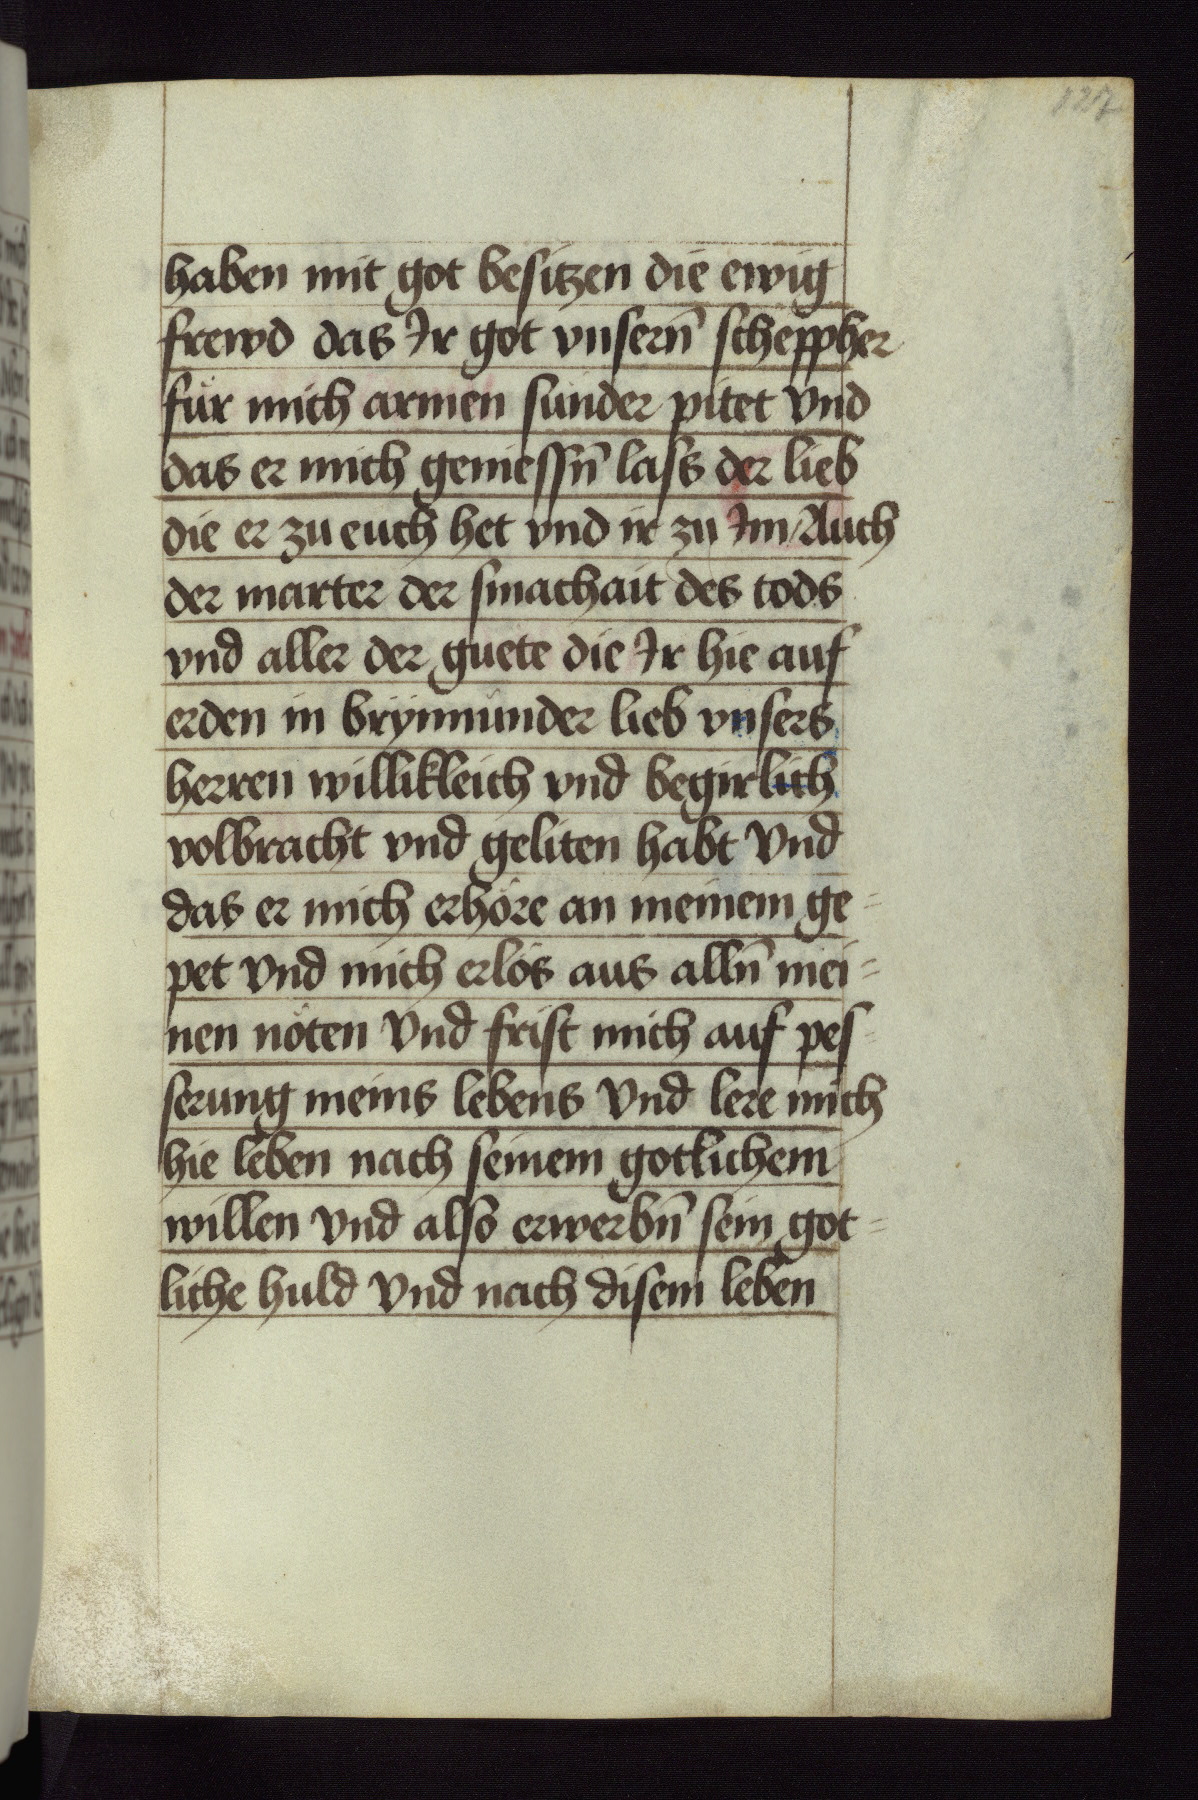 127
haben mit got besitzen die ewig
frewd das Ir got vnsern̄ scheppher
für mich armen sünder pitet Vnd
das er mich geniessn̄ lass der lieb
die er zu euch het vnd ir zu Im / Auch
der marter der smachait des tods
vnd aller der guete die Ir hie auf
erden in brynnunder lieb vnsers
herren willikleich vnd begirlich
volbracht vnd geliten habt Vnd
das er mich erhöre an meinem ge=
pet Vnd mich erlös aus alln̄ mei=
nen nöten Vnd frist mich auf pes=
serung meins lebens Vnd lere mich
hie leben nach seinem gotlichem
willen Vnd also erwerbn̄ sein got=
liche huld Vnd nach disem leben